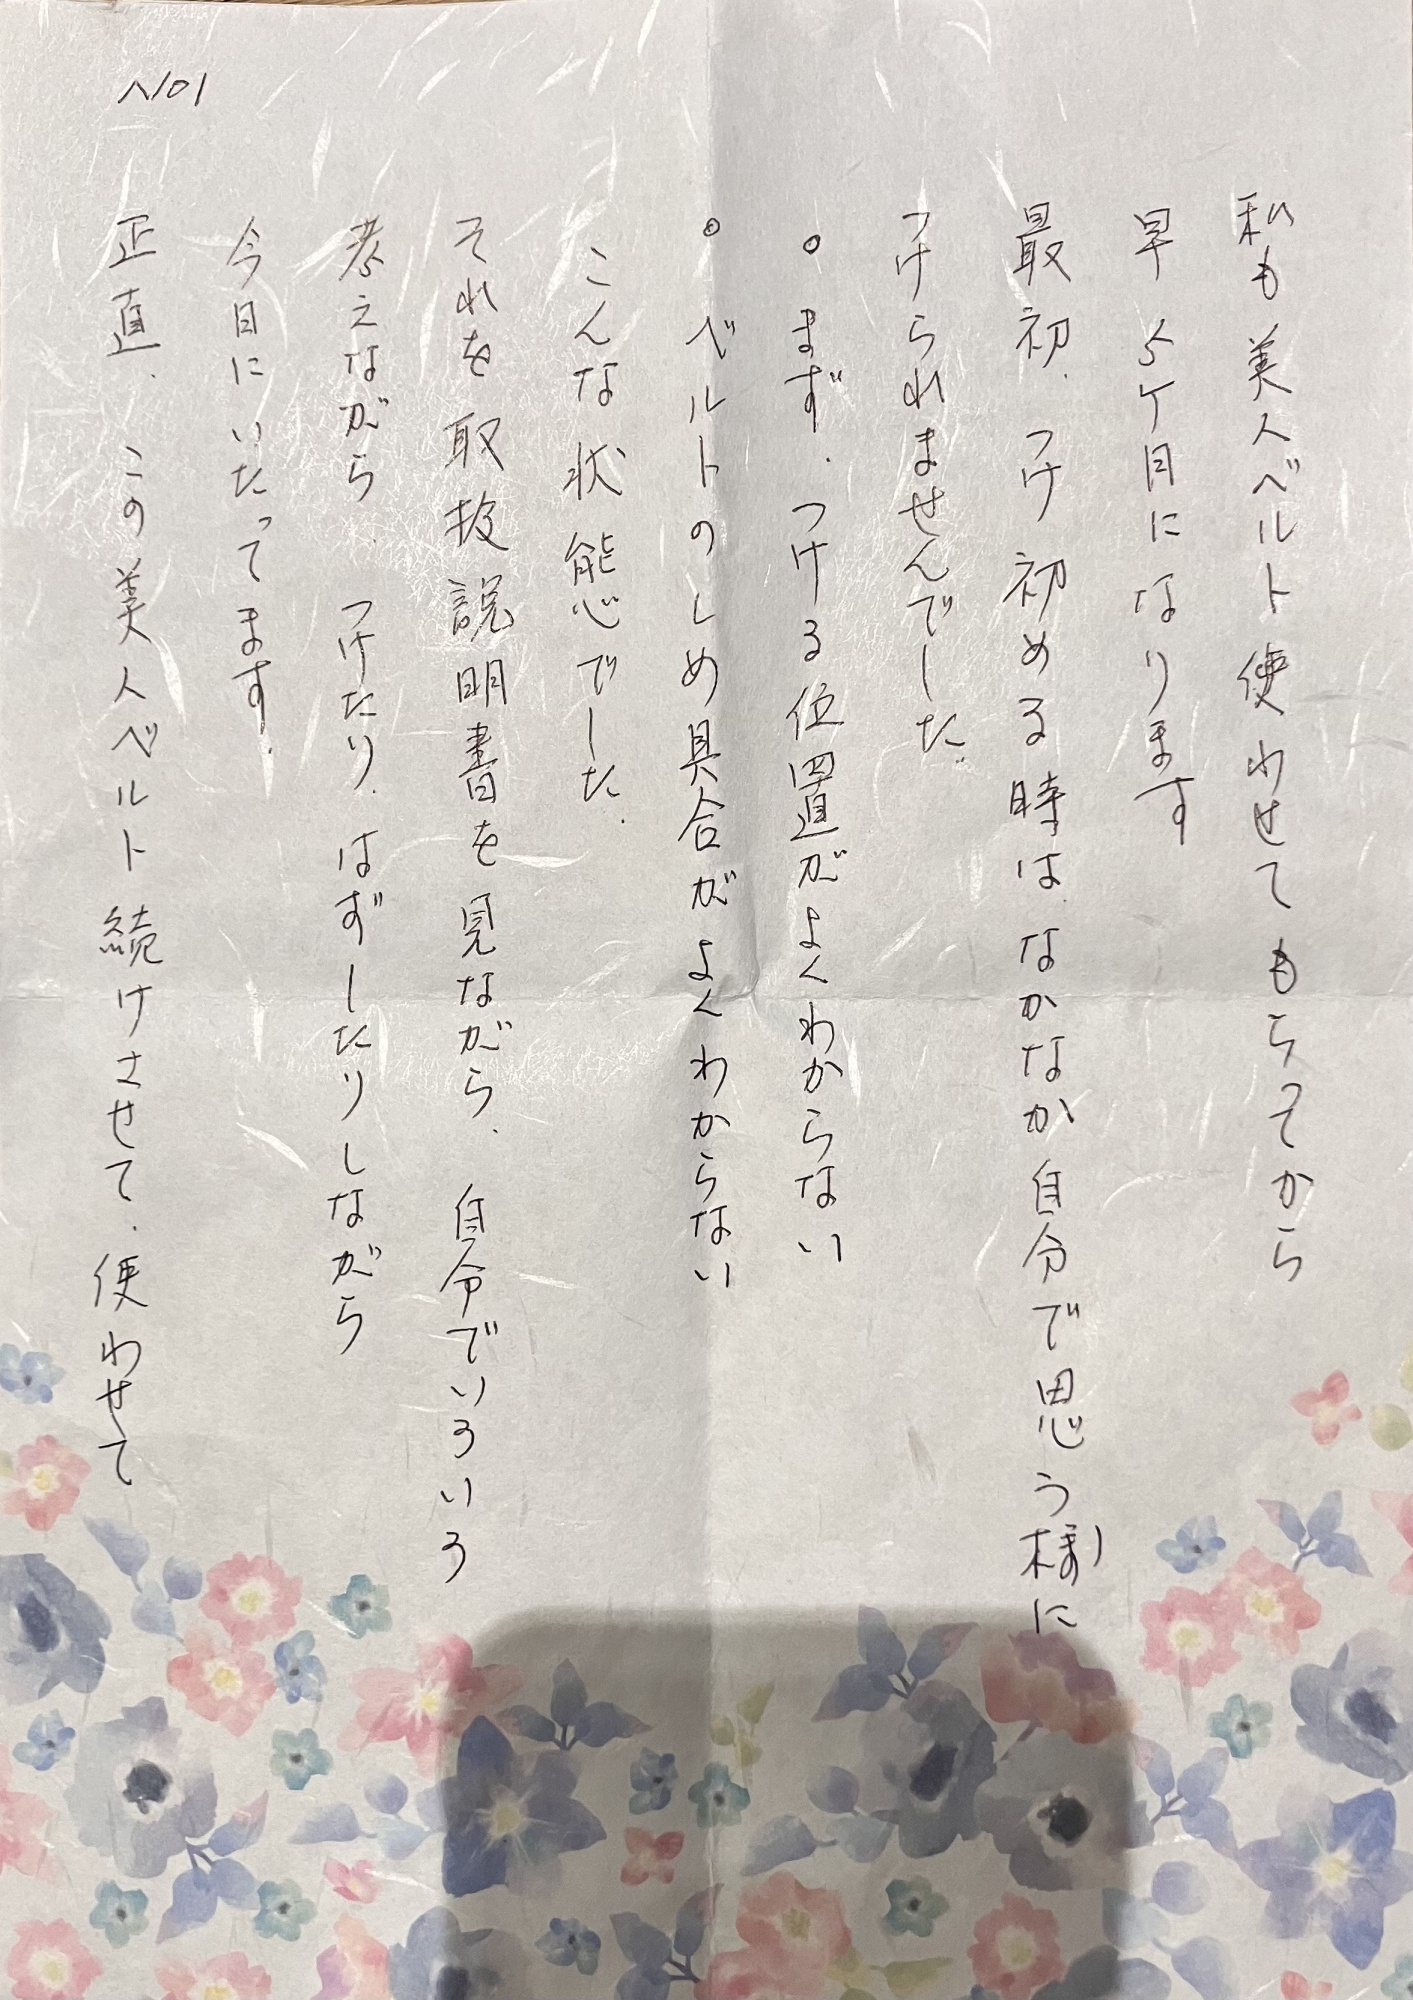 No1
私も美人ベルト使わせてもらってから
早5ケ月になります
最初.つけ初める時は.なかなか自分で思う様に
つけられませんでした.
○まず.つける位置がよくわからない
○ベルトのしめ具合がよくわからない
こんな状態でした.
それを取扱説明書を見ながら.自分でいろいろ
考えながら.つけたり.はずしたりしながら
今日にいたってます.
正直.この美人ベルト続けさせて.使わせて